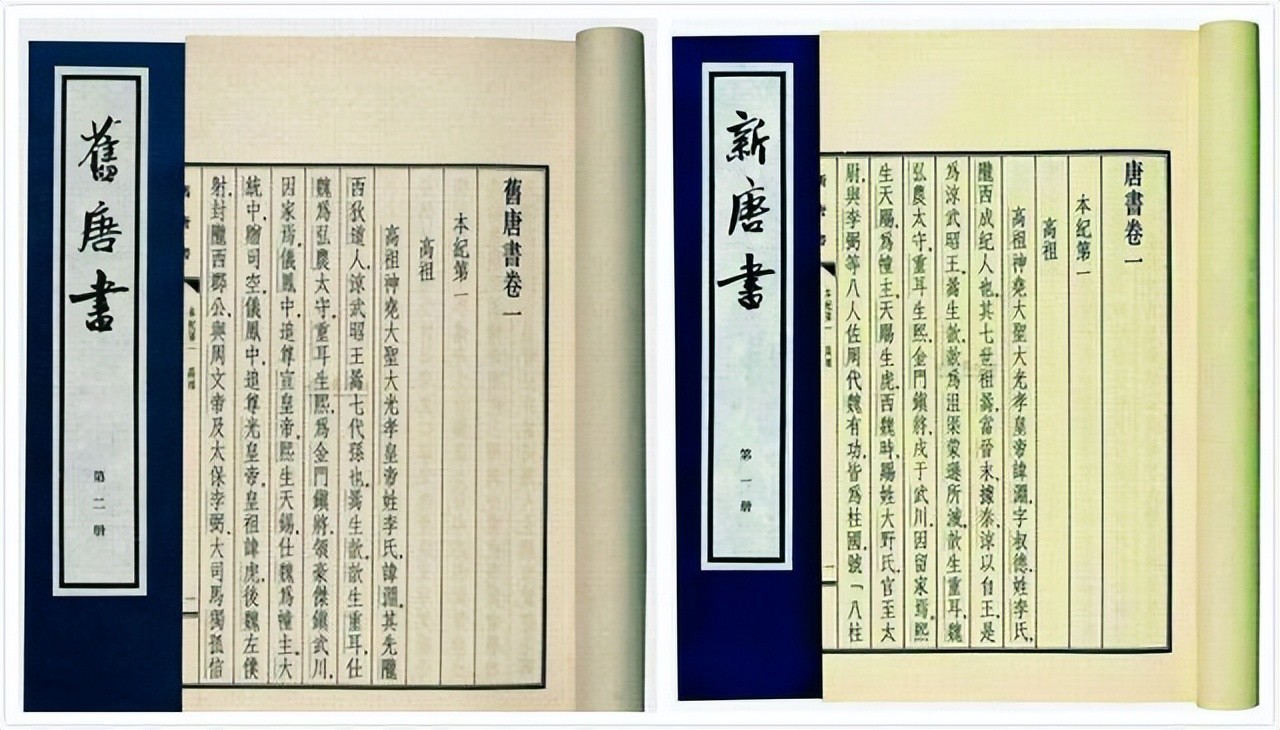 舊唐書
第二册
舊唐書卷一
本紀第一
高祖
高祖神堯大聖大光孝皇帝姓李氏，諱淵。其先隴
西狄道人，涼武昭王暠七代孫也。暠生歆。歆生重耳，仕
魏爲弘農太守。重耳生熙，爲金門鎮將，領豪傑鎮武川，
因家焉。儀鳳中，追尊宣皇帝。熙生天錫，仕魏爲幢主。大
統中，贈司空。儀鳳中，追尊光皇帝。皇祖諱虎，後魏左僕
射，封隴西郡公，與周文帝及太保李弼、大司馬獨孤信
新唐書
第一册
唐書卷一
本紀第一
高祖
高祖神堯大聖大光孝皇帝諱淵，字叔德，姓李氏，
隴西成紀人也。其七世祖暠，當晉末，據秦、涼以自王，是
爲涼武昭王。暠生歆，歆爲沮渠蒙遜所滅。歆生重耳，魏
弘農太守。重耳生熙，金門鎮將，戍于武川，因留家焉。熙
生天賜，爲幢主。天賜生虎，西魏時，賜姓大野氏，官至太
尉，與李弼等八人佐周代魏有功，皆爲柱國，號「八柱